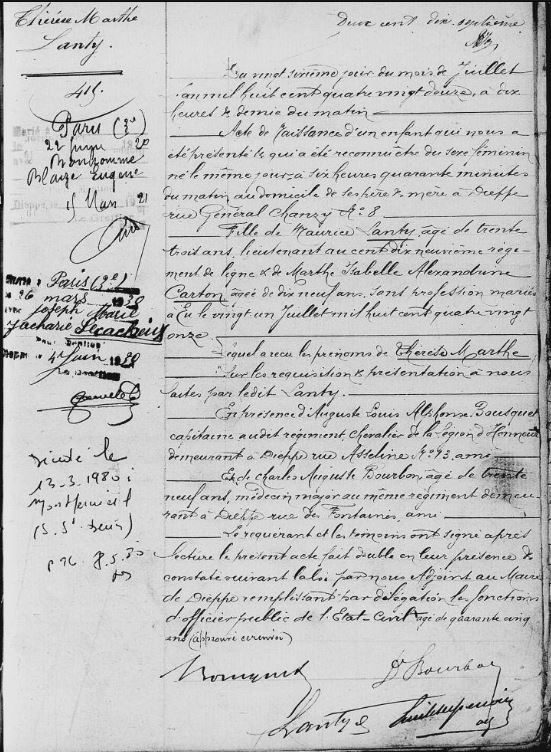 Thérèse Marthe
Lanty.
415.
Paris (3e)
22 juin 20
Bonhomme
Blaize Eugène
15 Mars 21
Paris (3e)
26 mars 1938
Joseph Marie
Zacharie
4 juin 1938
Décédé le
13.3.1980 à
Montfermeil
(S. St Denis)
Deux cent dix septième
Du vingt sixième jour du mois de Juillet
l'an mil huit cent quatre vingt douze, à dix
heures & demie du matin
Acte de Naissance d'un enfant qui nous a
été présenté & qui a été reconnu être du sexe féminin
né le même jour, à six heures quarante minutes
du matin, au domicile de ses père & mère à Dieppe
rue Général Chanzy No 8
Fille de Maurice Lanty, âgé de trente
trois ans, lieutenant au cent dix neuvième régi-
ment de ligne & de Marthe Isabelle Alexandrine
Carton âgée de dix neuf ans, sans profession mariés
à Eu le vingt un Juillet mil huit cent quatre vingt
onze.
Lequel a reçu les prénoms de Thérèse Marthe
Sur les requisition & présentation à nous
faites par le dit Lanty.
En présence d'Auguste Louis Alphonse Bousquet
capitaine au dit régiment Chevalier de la légion d'Honneur
demeurant à Dieppe rue Asseline No 43, ami
Et de Charles Auguste Bourbon, âgé de trente
neuf ans, médecin major au même régiment demeu-
rant à Dieppe rue des Fontaines, ami
Le requérant et les témoins ont signé après
lecture le présent acte fait double en leur présence &
constaté suivant la loi par nous Adjoint au Maire
de Dieppe remplissant par délégation les fonctions
d'officier public de l'Etat-Civil âgé de quarante cinq
ans
Bousquet
Dr Bourbon
Lanty